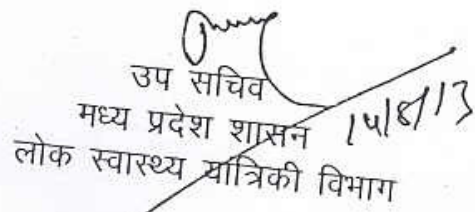 उप सचिव
मध्य प्रदेश शासन 14/8/13
लोक स्वास्थ्य यांत्रिकी विभाग